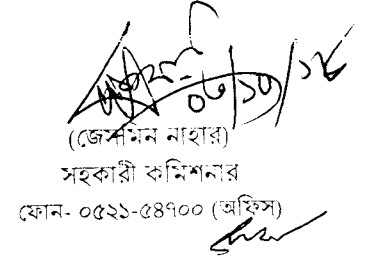 ০৮/১০/১৮
(জেসমিন নাহার)
সহকারী কমিশনার
ফোন- ০৫২১-৫৪৭০০ (অফিস)